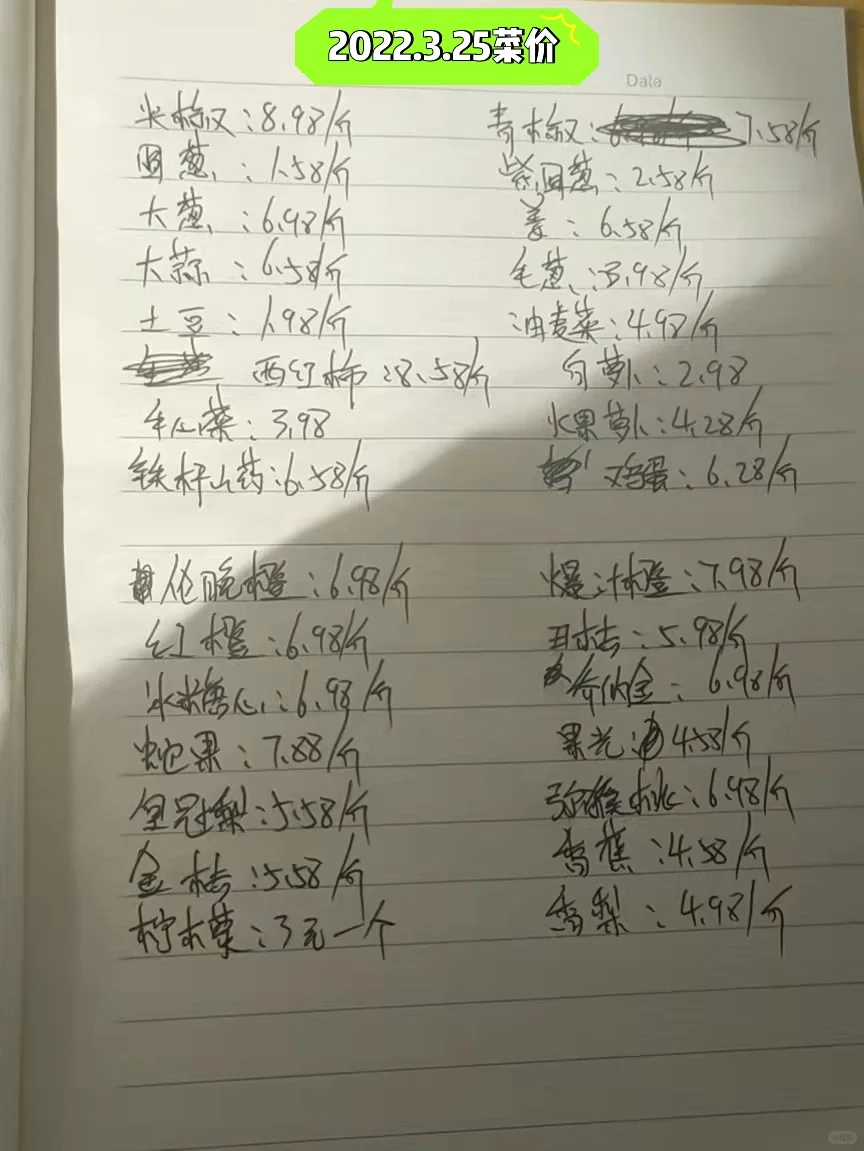 2022.3.25菜价
Date
尖椒:8.98/斤 青椒:7.58/斤
圆葱:1.58/斤 紫圆葱:2.58/斤
大葱:6.98/斤 姜:6.58/斤
大蒜:6.58/斤 毛葱:3.98/斤
土豆:1.98/斤 油麦菜:4.98/斤
西红柿:8.58/斤 白萝卜:2.98
菜:3.98 水果萝卜:4.28/斤
铁杆山药:6.58/斤 鸡蛋:6.28/斤
伦晚橙:6.98/斤 爆汁橙:7.98/斤
红橙:6.98/斤 桔:5.98/斤
冰糖心:6.98/斤 6.98/斤
蛇果:7.88/斤 果光:4.58/斤
皇冠梨:5.58/斤 猕猴桃:6.98/斤
金桔:5.58/斤 香蕉:4.58/斤
柠檬:3元一个 香梨:4.98/斤